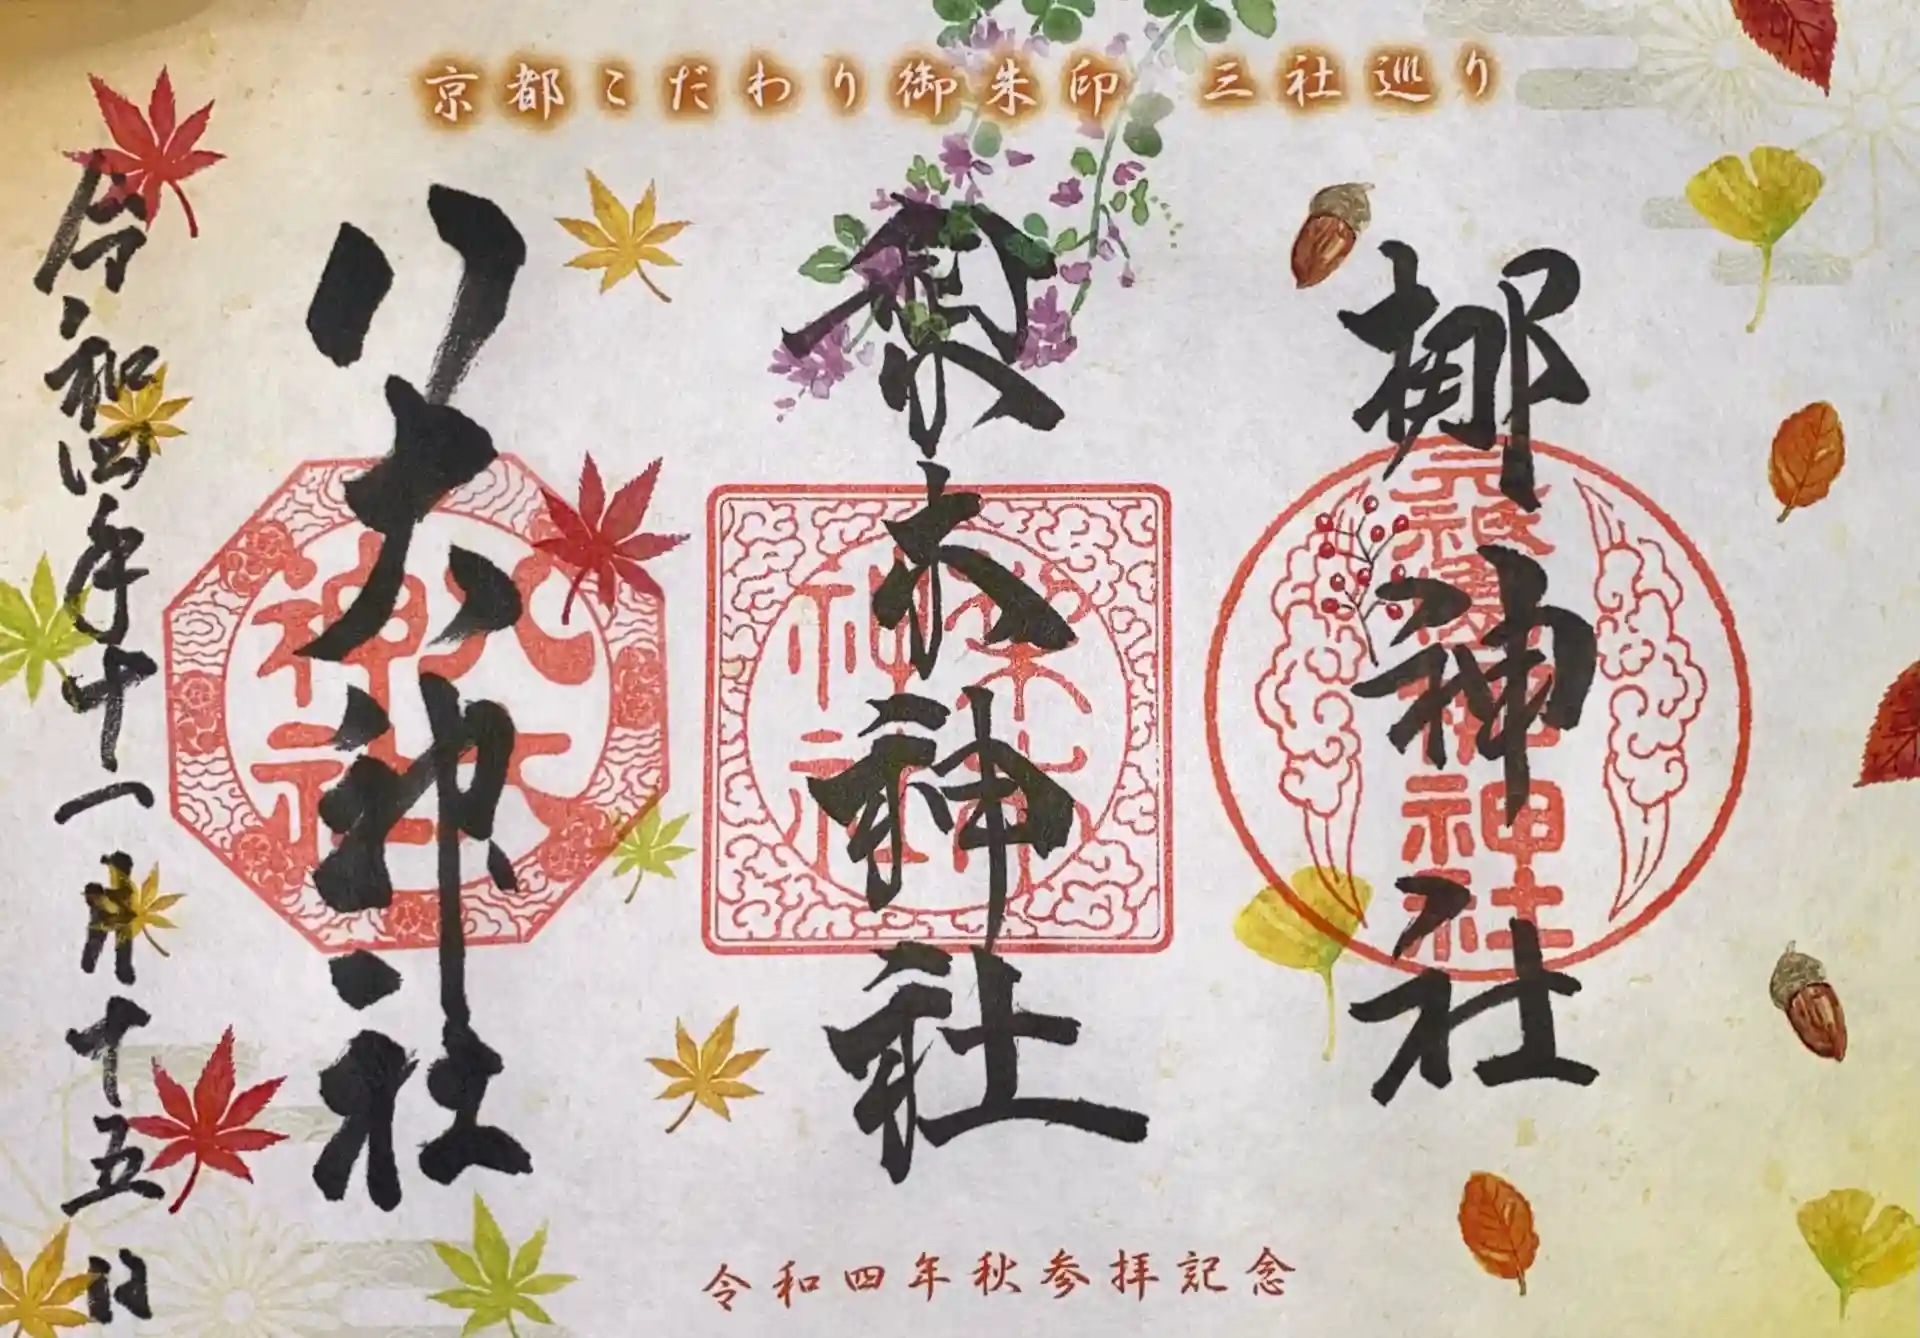 京都こだわり御朱印 三社巡り
梛神社
元祇園梛神社
粂木神社
八大神社
八大神社
令和四年十一月十五日
令和四年秋参拝記念